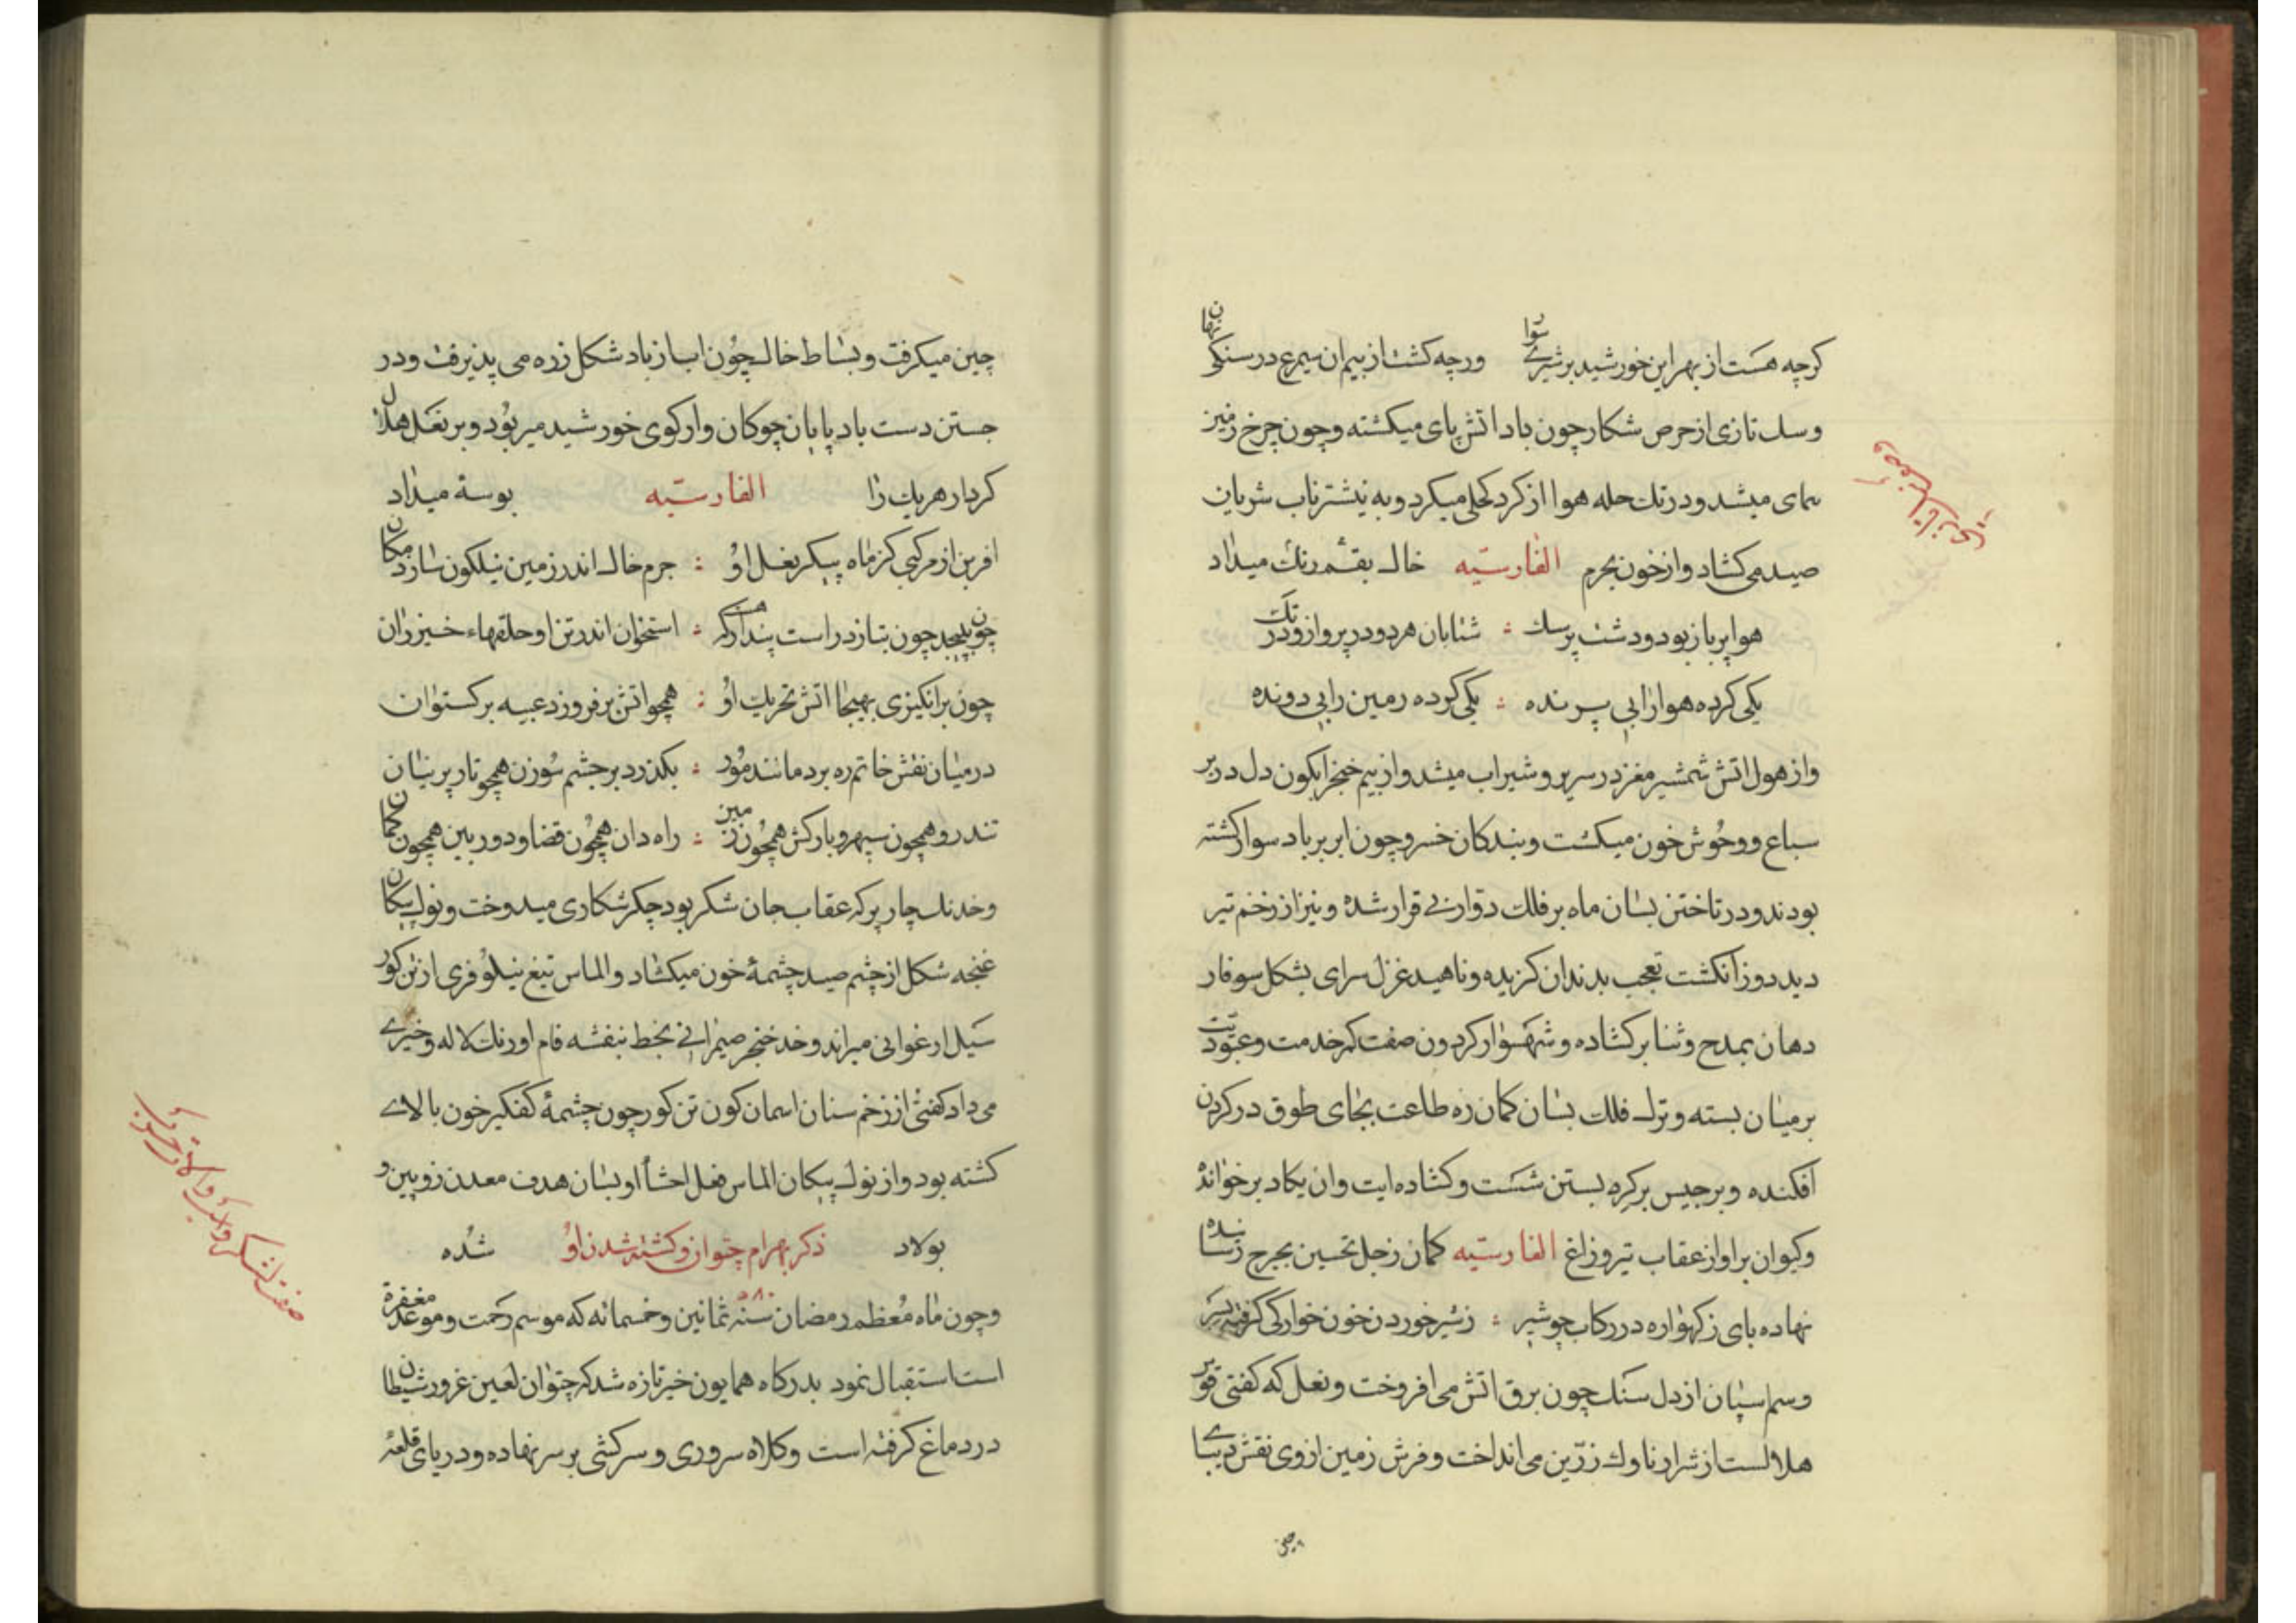 کرچه هست از بهر این خورشید بر شیرے سوار ورچه کشت از بیم ان سیمرغ در سنکی نهان
وسک تازی از حرص شکار چون باد اتش پای میکشته وچون چرخ زمین
پمای میشد ودرتك حله هوا از کرد کحلی میکرد وبه نیشتر ناب شریان
صید می کشاد واز خون بجرم الفارسیّه خاك بقم رنك میداد
هوا پر باز بود ودشت پر سك : شتابان هر دو در پرواز ودر تك
یکی کرده هوا را بی پرنده : یکی کرده زمین را بی دونده
واز هول اتش شمشیر مغز در سر ببر وشیر اب میشد واز بیم خنجر ابکون دل در بر
سباع ووحُوش خون میکشت وبندکان خسرو چون ابر بر باد سوار کشته
بودند ودر تاختن بسان ماه بر فلك دوّار بی قرار شده ونیز از زخم تیر
دیده دوز انکشت تعجب بدندان کزیده وناهید غزل سرای بشکل سوفار
دهان بمدح وثنا بر کشاده وشهسوار کردون صفت کمر خدمت وعبودیّت
بر میان بسته وترك فلك بسان کمان زه طاعت بجای طوق در کردن
افکنده وبرجیس بر کره بستن شست وکشاد ه ایت وان یکاد بر خوانده
وکیوان بر اواز عقاب تیر وزاغ الفارسیّه کمان زحل تحسین بچرخ رسانده
نهاده پای ز کهواره در رکاب چو شیر : ز شیر خوردن خون خوارکی کرفته بسر
وسم اسپان از دل سنك چون برق اتش می افروخت ونعل که کفتی قوّر
هلالست از شرار ناوك زرّین می انداخت وفرش زمین از وی نقش دیبای
چین میکرفت وبساط خاك چوُن اب از باد شکل زره می پذیرفت ودر
جستن دست باد پایان چوکان وار کوی خورشید میربُود وبر نعل هلال
کردار هریك را الفارسیّه بوسه میداد
افرین از مرکبی کز ماه پیکر نعل اوُ : جرم خاك اندر زمین نیلکون سازد مکان
چون بپیچد چون بتازد راست پندار که هست : استخوان اندر تن او حلقهاء خیزران
چون بر انکیزی بهیجا اتش تحریك اوُ : همچو اتش بر فروزد عیبه برکستوان
در میان نقش خاتم ره برد مانند مُور : بکذرد بر چشم سُوزن همچو تار پرنیان
تند رو همچون سپهر وبارکش همچُون زمین : راه دان همچُون قضا ودور بین همچون کمان
وخدنك چار پر که عقاب جان شکر بود جکر شکاری میدوخت ونوك پیکان
غنجه شکل از چشم صید چشمهٔ خون میکشاد والماس تیغ نیلُوفری از تن کور
سیل ارغوانی میراند وخد خنجر ضیمرانی بخط بنفشه فام اورنك لاله وخیرے
می داد کفتی از زخم سنان اسمان کون تن کور چون چشمهٔ کفکیر خون بالاے
کشته بود واز نوك پیکان الماس فعل احشاٴ او بسان هدف معدن زوبین و
بولاد ذکر بهرام چتوان وکشته شدن اوُ شُده
وچون ماه مُعظم رمضان سنه ۵۸۰ ثمانین وخمسمائه که موسم رحمت وموعد مغفرة
است استقبال نمود بدرکاه همایون خبر تازه شد که چتوان لعین غرور شیطان
در دماغ کرفته است وکلاه سروری وسرکشی بر سر نهاده ودر پای قلعهٔ